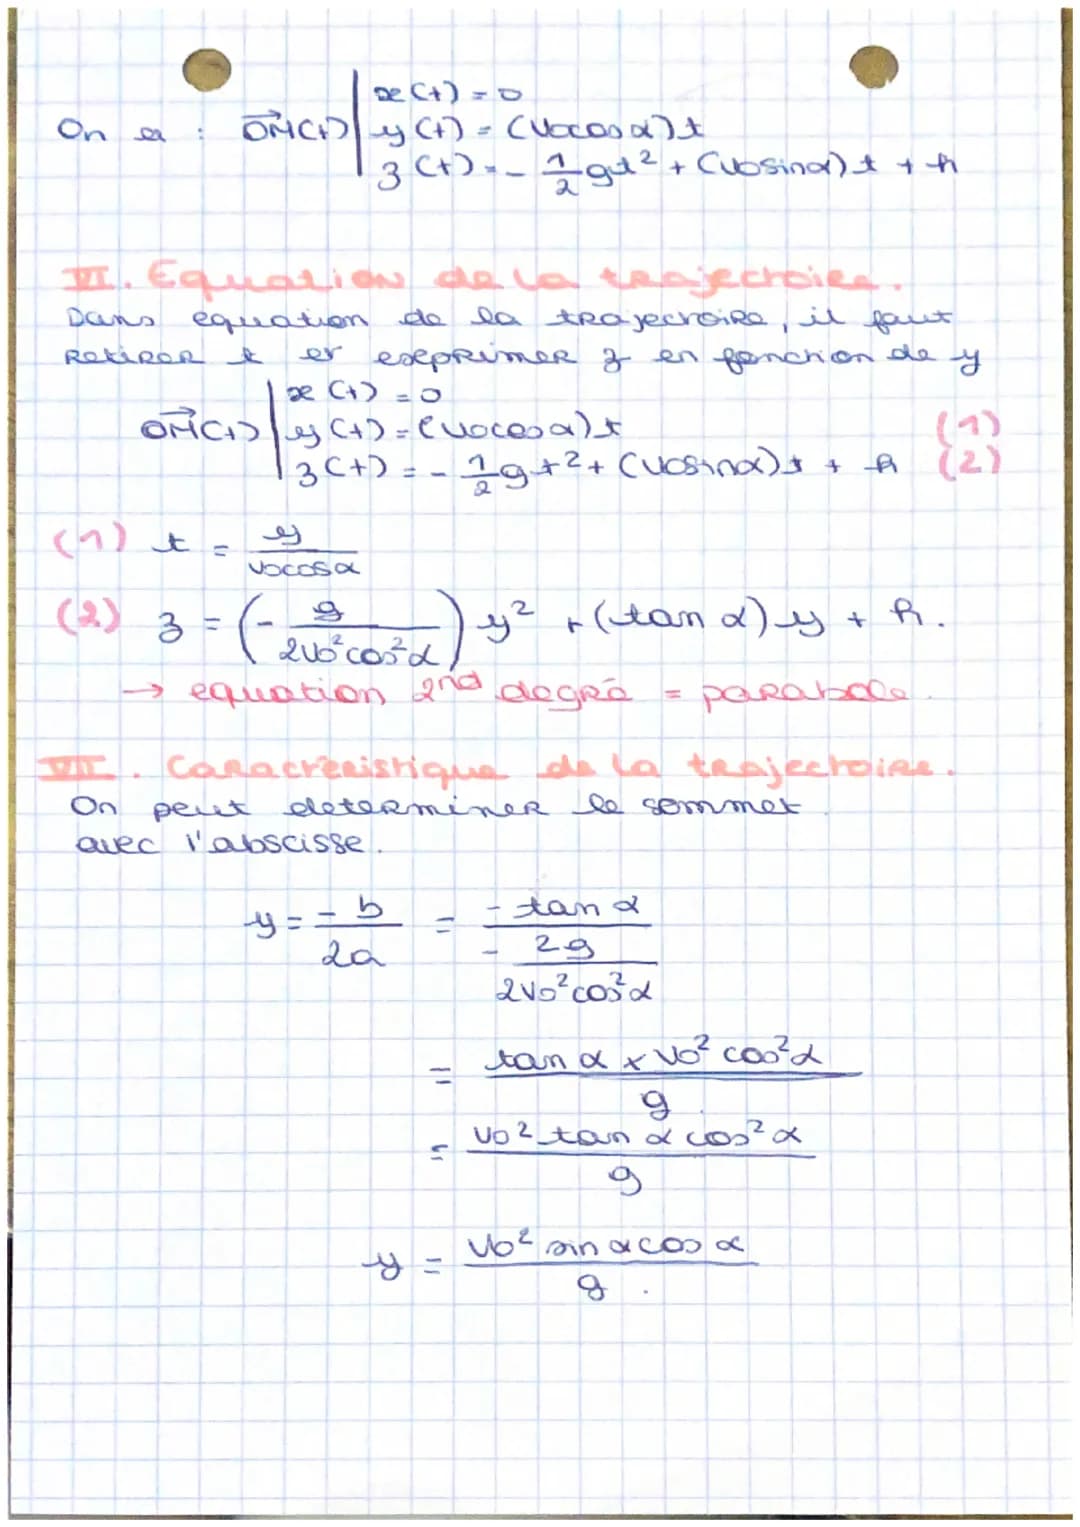 x(t) = 0
On a : OM(t) y(t) = (v₀cosα)t
z(t) = - 1/2 gt² + (v₀sinα)t + h
VI. Equation de la trajectoire.
Dans equation de la trajectoire, il faut
Retirer t et exprimer z en fonction de y
x(t) = 0
OM(t) y(t) = (v₀cosα)t (1)
z(t) = - 1/2 gt² + (v₀sinα)t + h (2)
(1) t = y / v₀cosα
(2) z = (- g / 2v₀²cos²α) y² + (tan α)y + h.
→ equation 2nd degré = parabole.
VII. Caractéristique de la trajectoire.
On peut determiner le sommet
avec l'abscisse.
y = -b / 2a = -tan α / (- 2g / 2v₀²cos²α)
= tan α × v₀² cos²α / g
= v₀² tan α cos² α / g
y = v₀² sin α cos α / g.